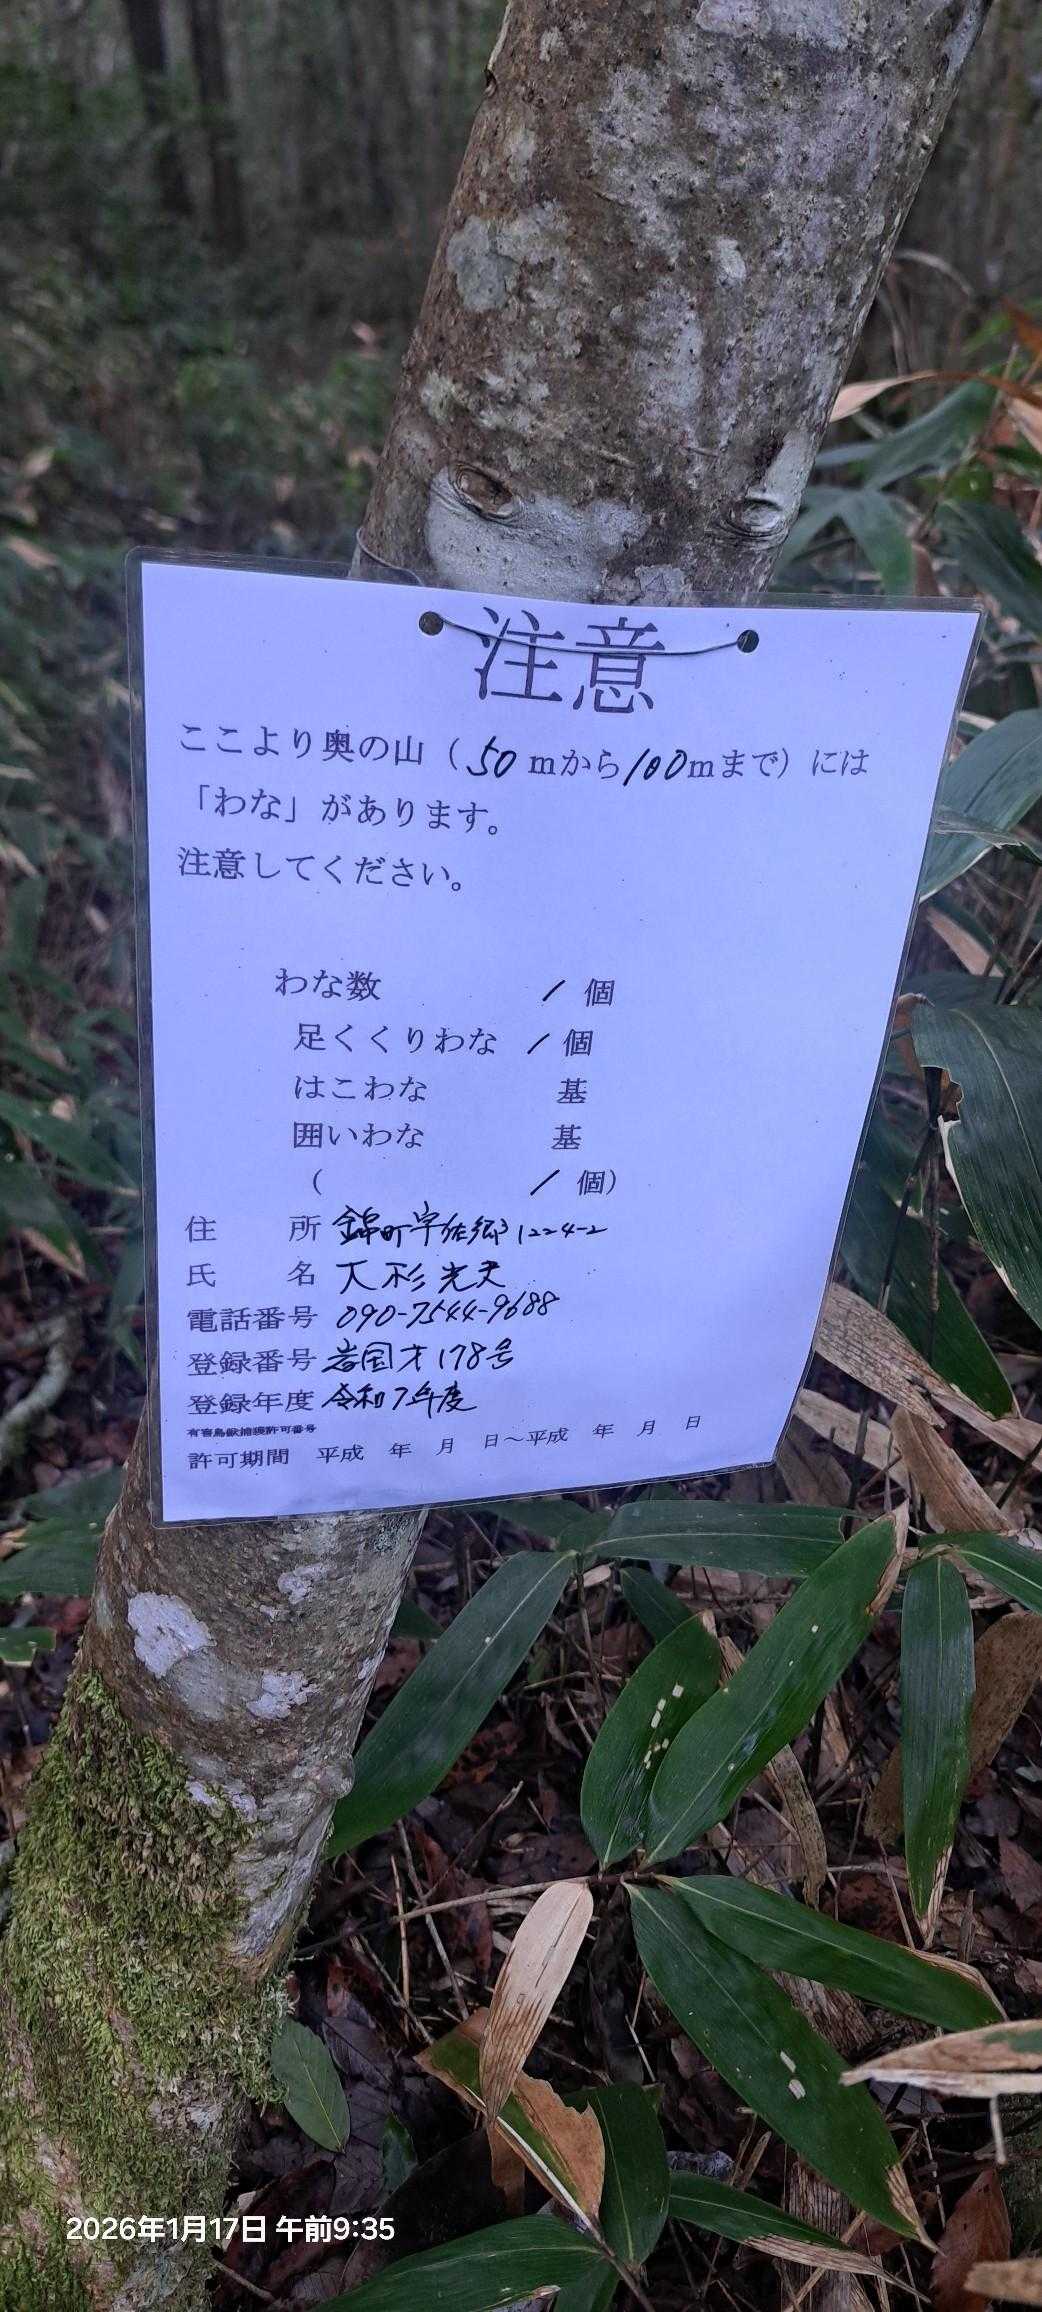 注意
ここより奥の山（50mから100mまで）には
「わな」があります。
注意してください。
わな数 1個
足くくりわな 1個
はこわな 基
囲いわな 基
（ 1個）
住 所 錦町宇佐郷1224-2
氏 名 大杉光夫
電話番号 090-7544-9688
登録番号 岩国才178号
登録年度 令和7年度
有害鳥獣捕獲許可番号
許可期間 平成 年 月 日～平成 年 月 日
2026年1月17日 午前9:35